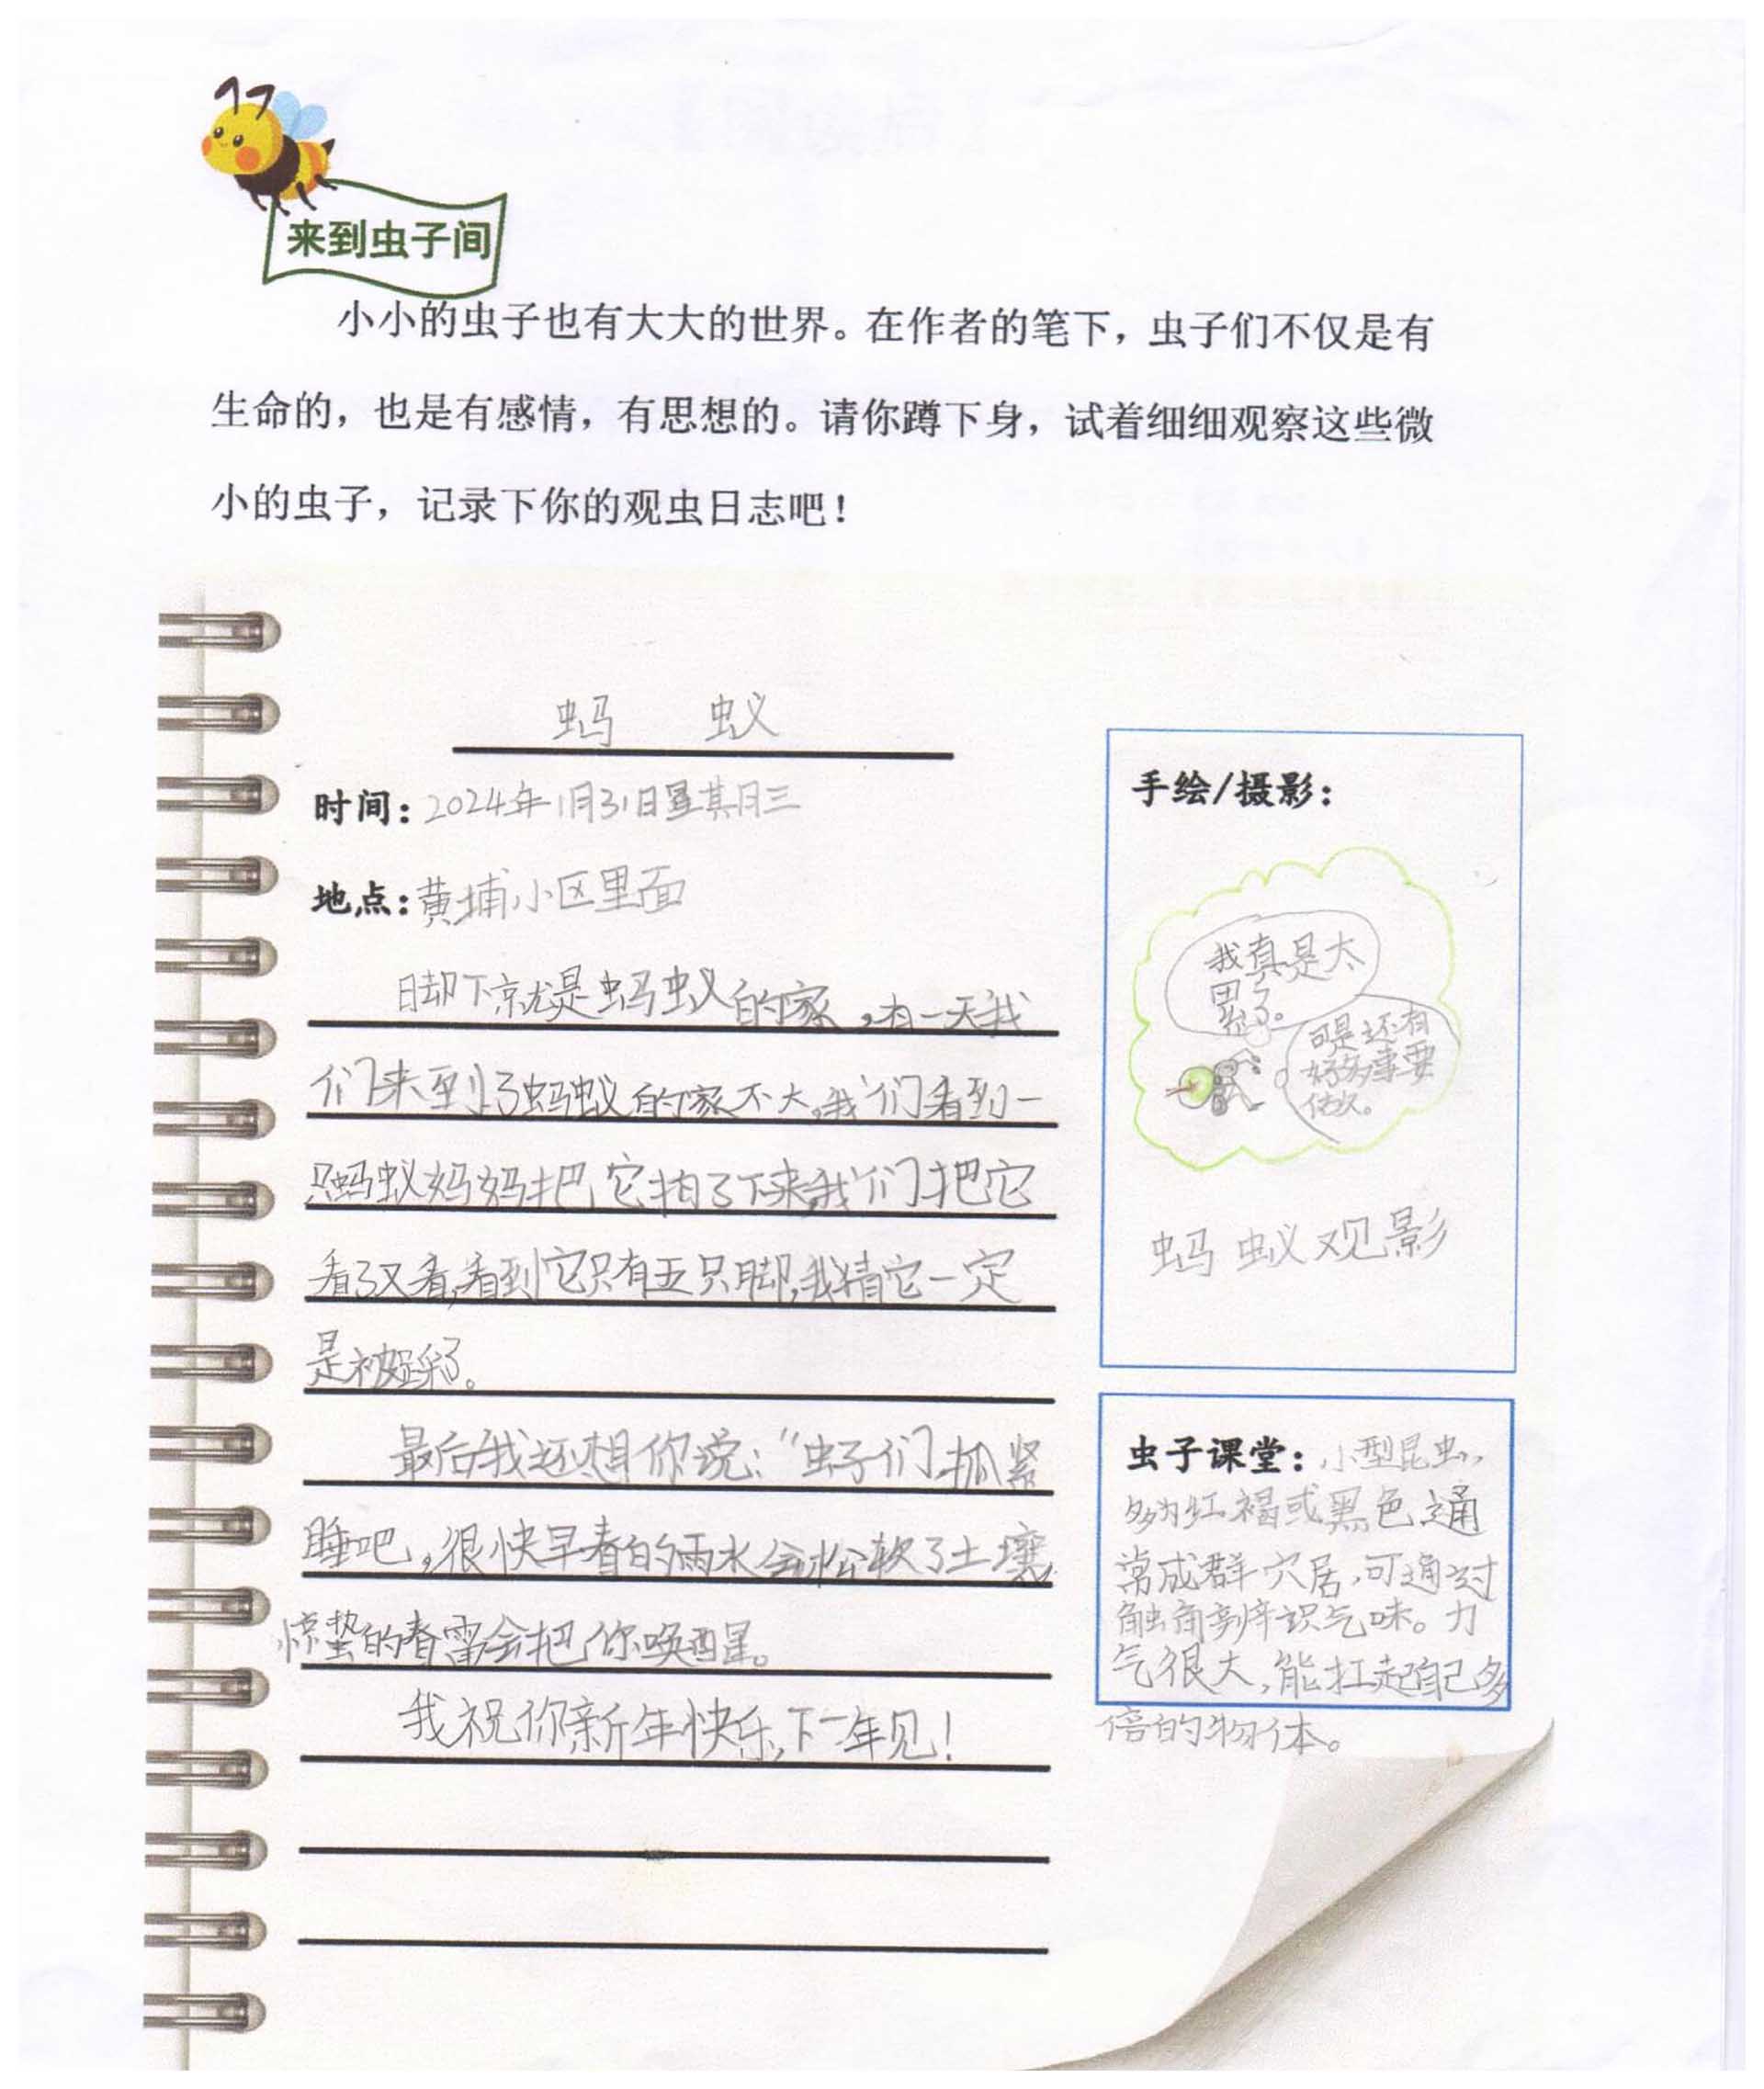 来到虫子间
小小的虫子也有大大的世界。在作者的笔下，虫子们不仅是有
生命的，也是有感情，有思想的。请你蹲下身，试着细细观察这些微
小的虫子，记录下你的观虫日志吧！
蚂 蚁
时间：2024年1月31日星期三
地点：黄埔小区里面
脚下京就是蚂蚁的家，有一天我
们来到了蚂蚁的家不大，我们看到一
只蚂蚁妈妈把它拍了下来我们把它
看了又看，看到它只有五只脚，我猜它一定
是被踩了。
最后我还想你说：“虫子们，抓紧
睡吧，很快早春的雨水会松软了土壤，
惊蛰的春雷会把你唤醒。
我祝你新年快乐，下一年见！
手绘/摄影：
我真是太
累了。
可是还有
好多事要
做。
蚂蚁观影
虫子课堂：小型昆虫，
多为红褐或黑色通
常成群穴居，可通过对
触角辨识气味。力
气很大，能扛起自己多
倍的物体。